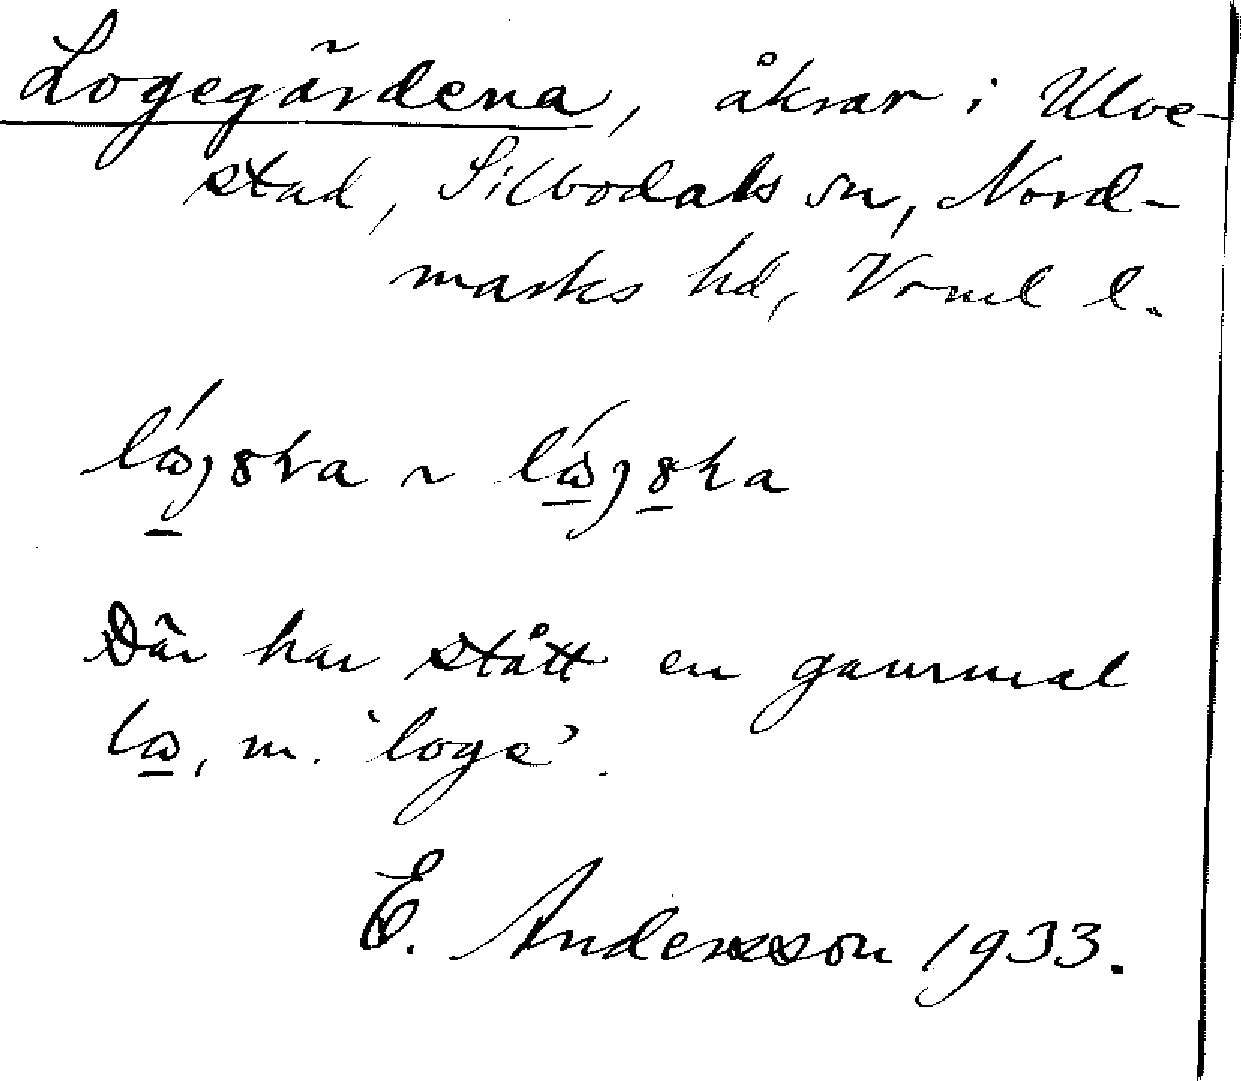 Logegärdena, åkrar i Ulve-
stad, Silbodals sn, Nord-
marks hd, Vrml l.
Där har stått en gammal
lω, m. 'loge'.
E. Andersson 1933.